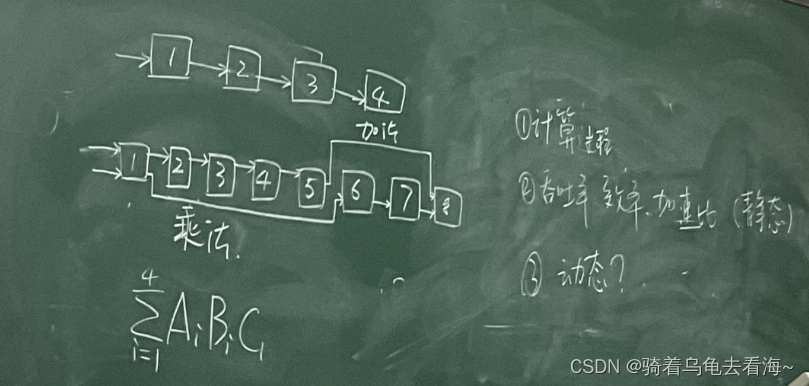 1 2 3 4
加法
1 2 3 4 5 6 7 8
乘法.
4
∑ AᵢBᵢCᵢ
i=1
①计算过程
②吞吐率 效率.加速比(静态)
③ 动态?
CSDN @骑着乌龟去看海~